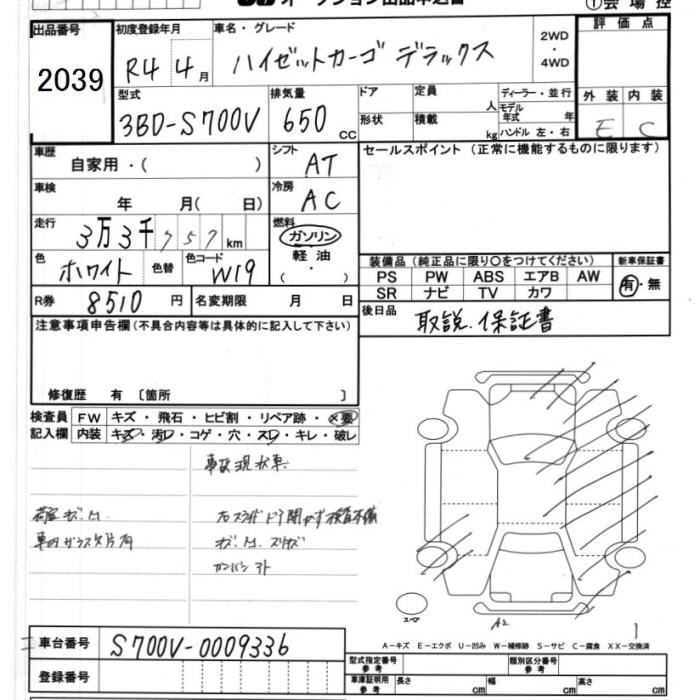 オークション出品申込書
①会場控
出品番号
2039
初度登録年月
R4 4月
車名・グレード
ハイゼットカーゴ デラックス
2WD
・
4WD
評価点
型式
3BD-S700V
排気量
650 CC
ドア
形状
定員 人
積載 kg
ディーラー・並行
モデル年式 年
ハンドル 左・右
外装 内装
E C
車歴
自家用・( )
シフト
AT
セールスポイント (正常に機能するものに限ります)
車検
年 月( 日)
冷房
AC
走行
3万3千757km
燃料
ガソリン
軽油
( ・ )
色
ホワイト
色替
色コード
W19
装備品 (純正品に限り○をつけてください)
新車保証書
PS PW ABS エアB AW
SR ナビ TV カワ
有・無
R券 8510円
名変期限 月 日
後日品 取説.保証書
注意事項申告欄(不具合内容等は具体的に記入して下さい)
修復歴 有〔箇所 〕
検査員記入欄
FW キズ・飛石・ヒビ割・リペア跡・×要
内装 キズ・汚レ・コゲ・穴・スレ・キレ・破レ
事故現状車
荷室キズ.凹
右スライドドア開かず検査不備
車内ガラス欠片有
キズ.凹.スリキズ
カンバンアト
スペア
A2
1
A-キズ E-エクボ U-凹み W-補修跡 S-サビ C-腐食 XX-交換済
車台番号 S700V-0009336
登録番号
型式指定番号 参考
類別区分番号 参考
車庫証明用 参考
長さ cm
幅 cm
高さ cm